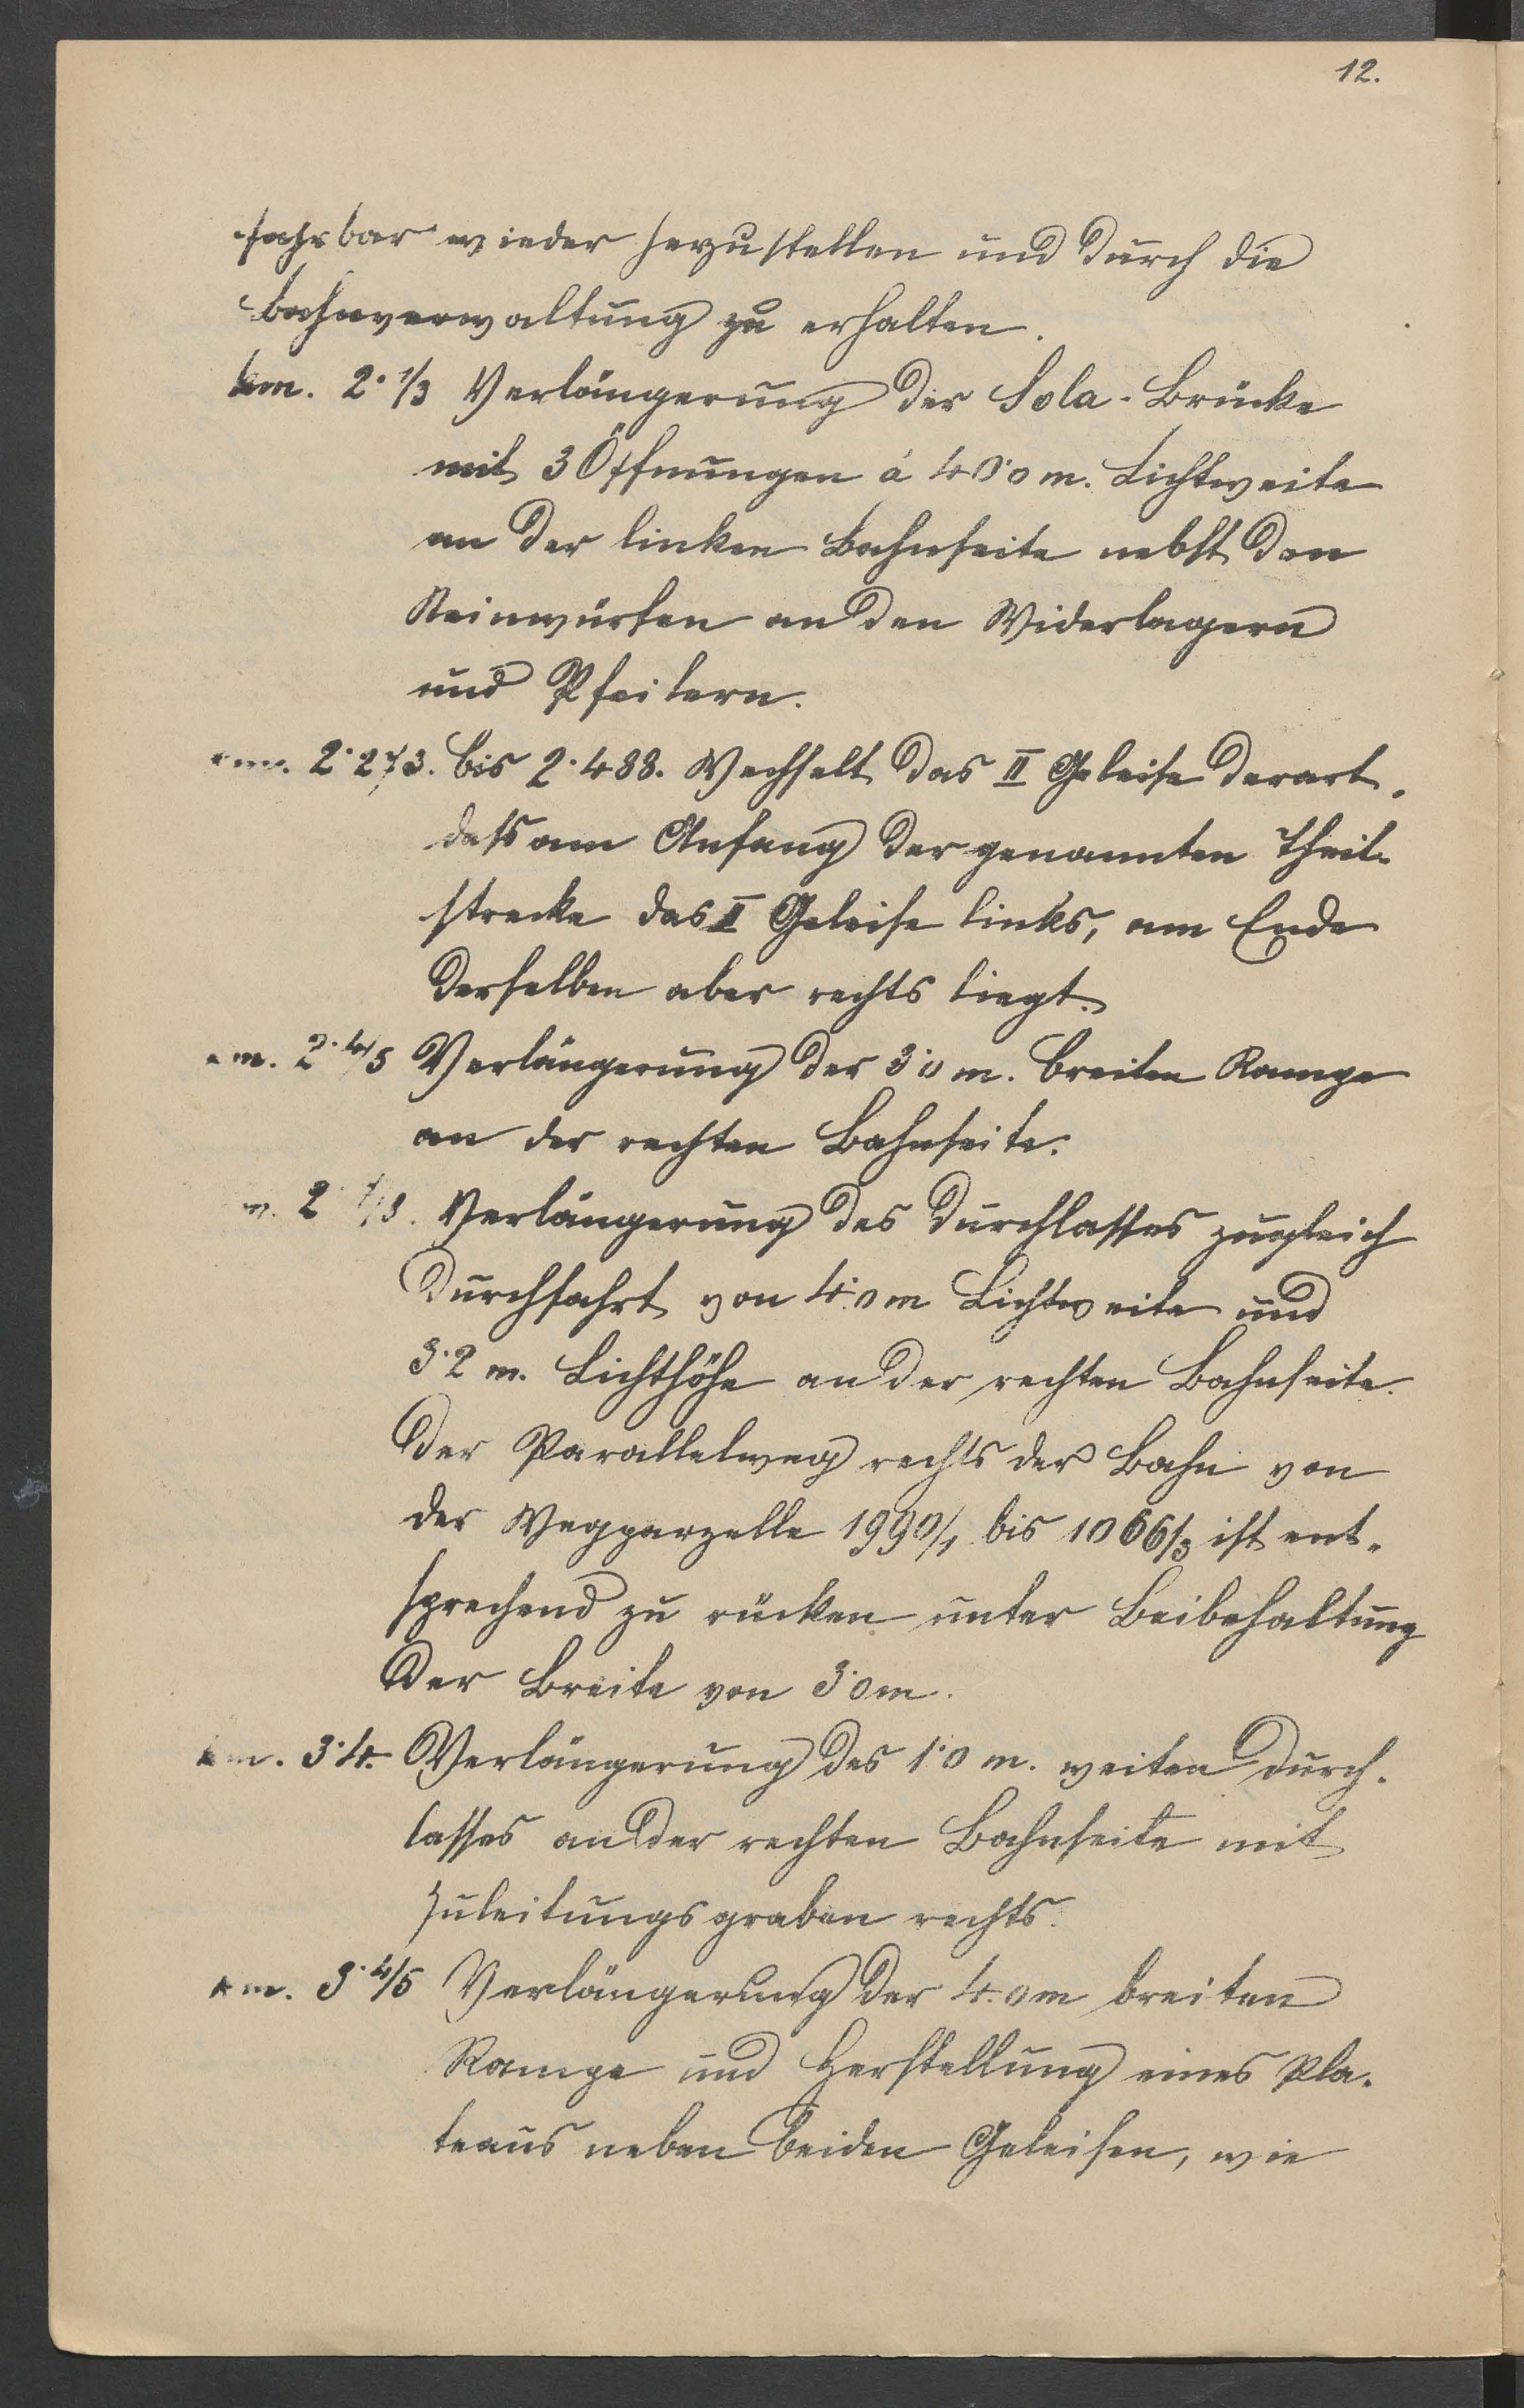 12.
fahrbar wieder herzustellen und durch die
Bahnverwaltung zu erhalten.
km. 2·1/3 Verlängerung der Sola-Brücke
mit 3 Öffnungen á 40·0 m. Lichtweite
an der linken Bahnseite nebst den
Steinwürfen an den Widerlagern
und Pfeilern.
km. 2·273. bis 2·488. Wechselt das II Geleise derart,
daß am Anfang der genannten Theil-
strecke das II Geleise links, am Ende
derselben aber rechts liegt.
km. 2·4/5 Verlängerung der 3·0 m. breiten Rampe
an der rechten Bahnseite.
m. 2 /8. Verlängerung des Durchlasses zugleich
Durchfahrt von 4·0 m Lichtweite und
3·2 m. Lichthöhe an der rechten Bahnseite.
Der Parallelweg rechts der Bahn von
der Wegparzelle 1990/1 bis 1066/3 ist ent-
sprechend zu rücken unter Beibehaltung
der Breite von 3·0 m.
km. 3·4. Verlängerung des 1·0 m. weiten Durch-
lasses an der rechten Bahnseite mit
Zuleitungsgraben rechts.
km. 3·4/5 Verlängerung der 4·0 m breiten
Rampe und Herstellung eines Pla-
teaus neben beiden Geleisen, wie